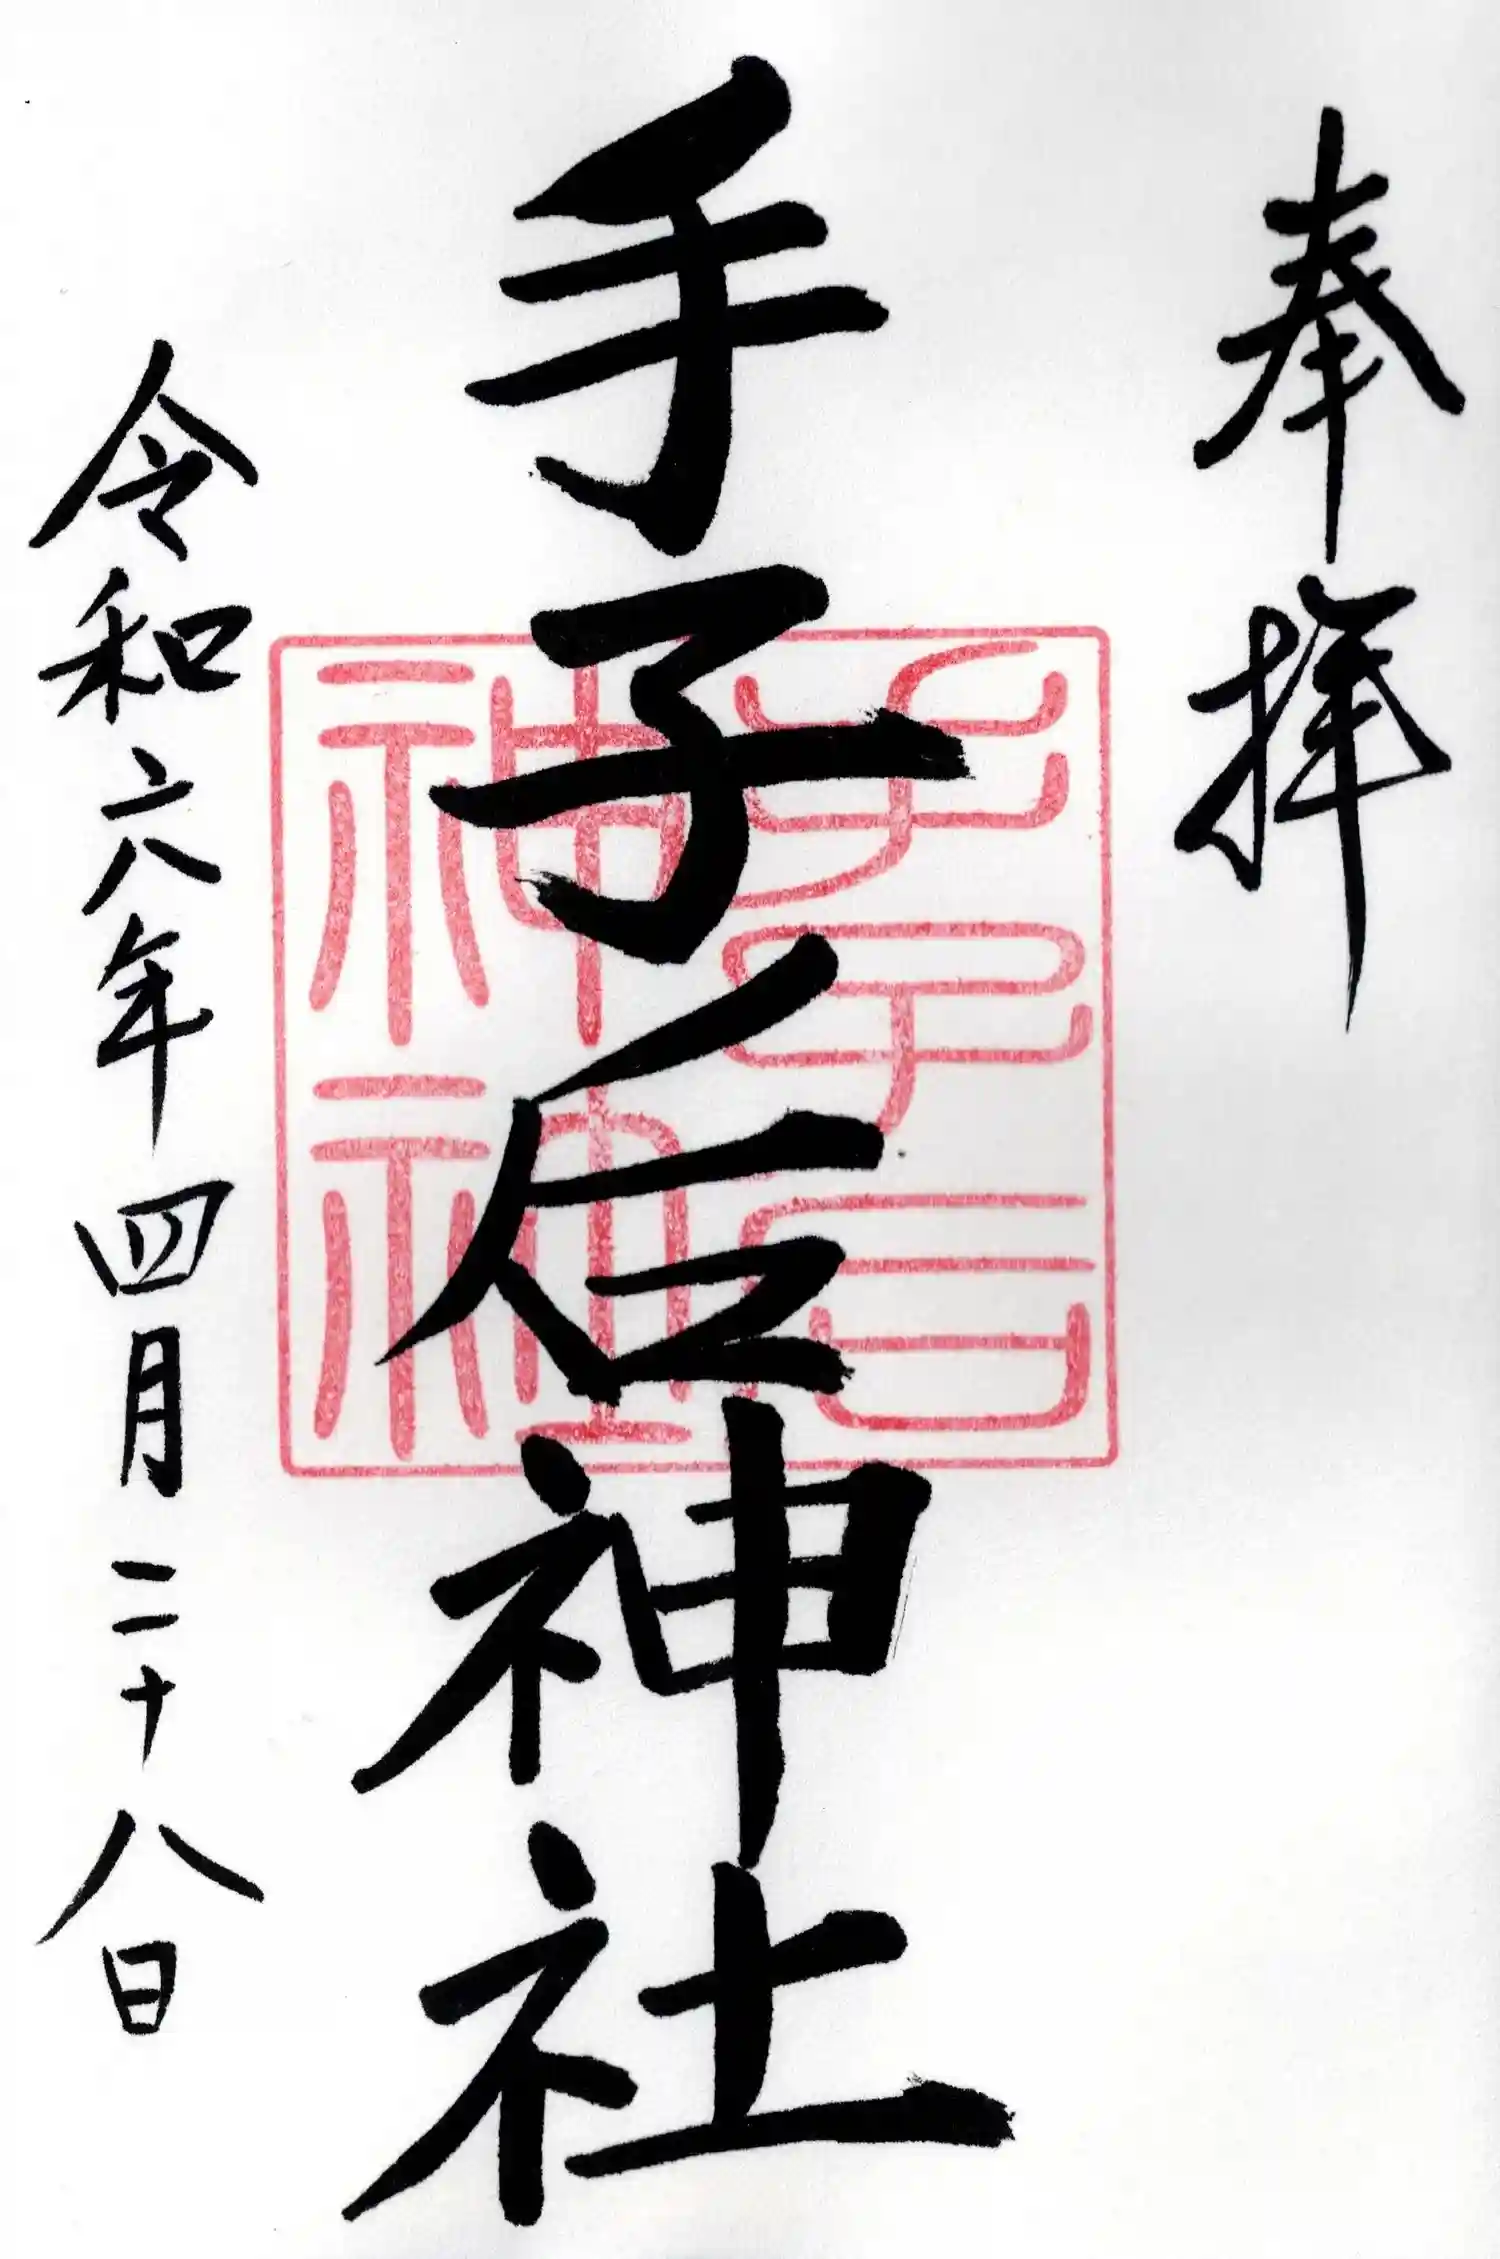 奉拝
手子后神社
手子后神社
令和六年四月二十八日